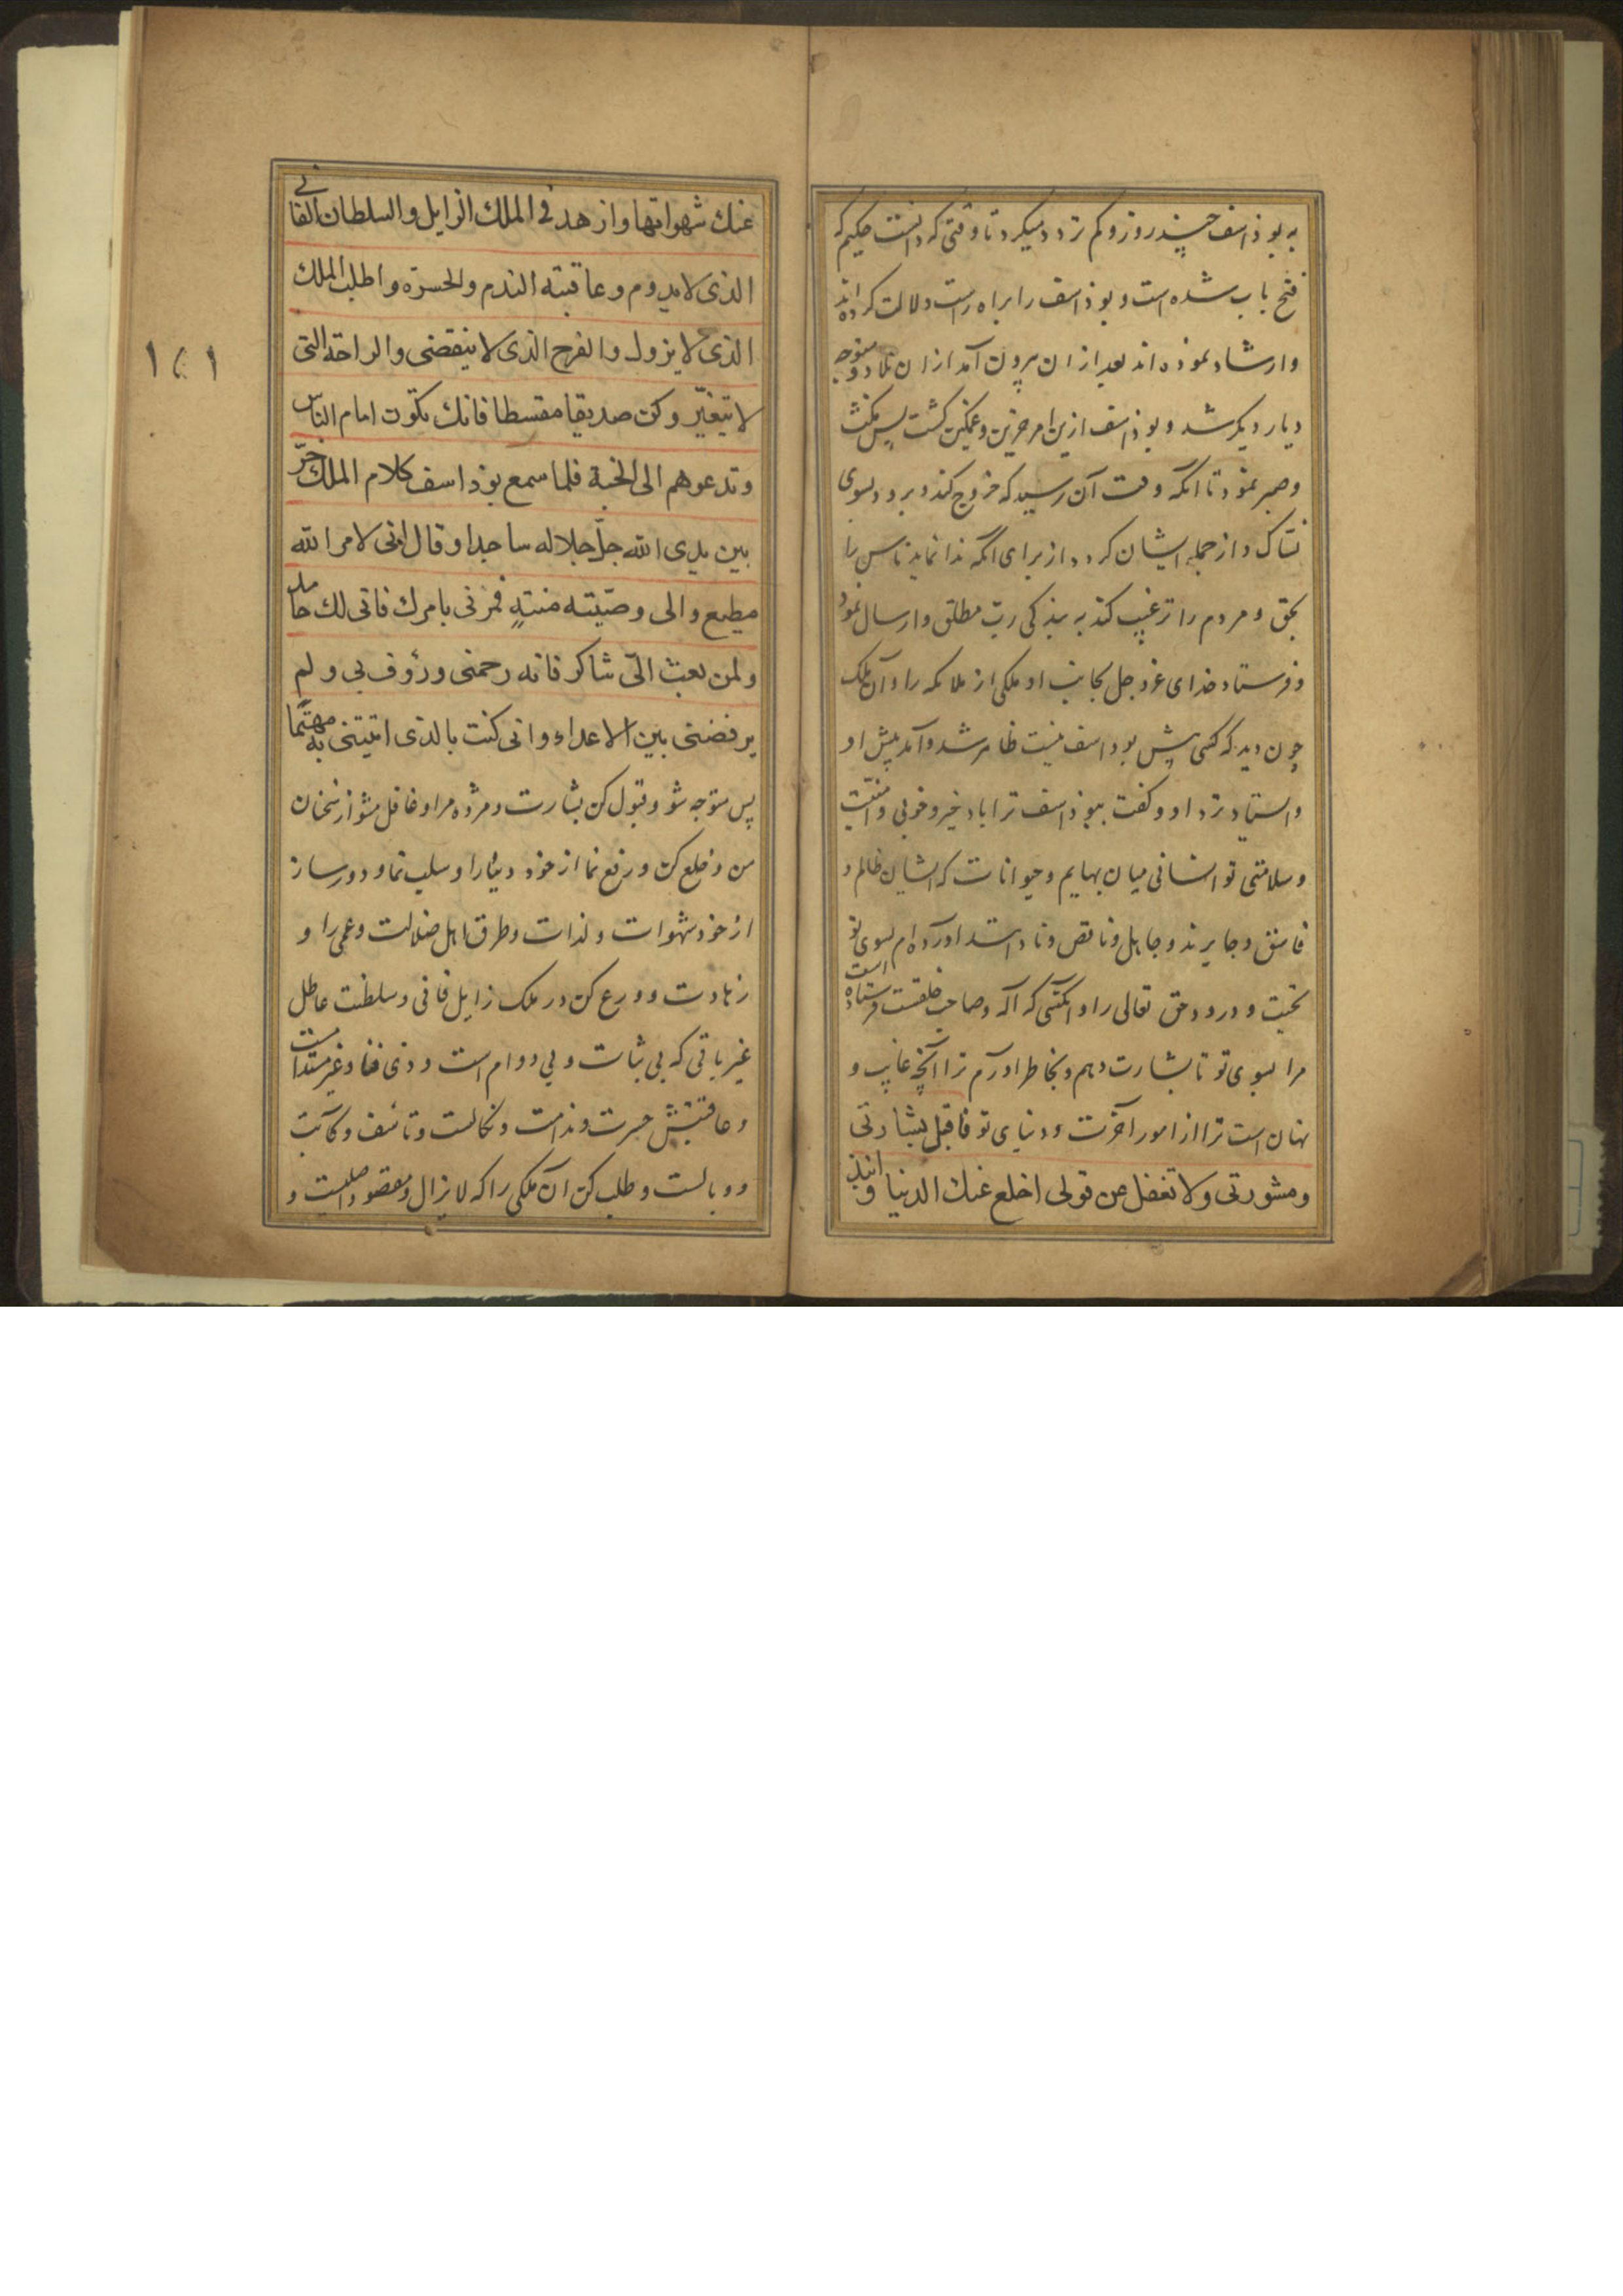 به بوذاسف چند روز و کم تردد میکرد تا وقتی که دانست حکیم که
فتح باب شده است و بوذاسف را براه راست دلالت کرده اند
وارشاد نموده اند بعد از ان بیرون آمد از ان بلاد و متوجه
دیار دیکر شد و بوذاسف ازین امر حزین و غمکین کشت پس مکث
و صبر نمود تا انکه وقت آن رسید که خروج کند و برود بسوی
نساک و از جمله ایشان کردد از برای انکه ندا نماید ناس را
بحق و مردم را ترغیب کند به بندکی رب مطلق و ارسال نمود
و فرستاد خدای عز و جل بجانب او ملکی از ملائکه را و آن ملک
چون دید که کسی پیش بوداسف نیست ظاهر شد و آمد پیش او
و ایستاد نزد او و کفت ببوذاسف ترا باد خیر و خوبی و امنیت
و سلامتی تو انسانی میان بهایم و حیوانات که ایشان ظالم و
فاسق و جایرند و جاهل و ناقص و نادانند اورده ام بسوی تو
تحیت و درود حق تعالی را و انکسی که آله و صاحب خلقست فرستاده است
مرا بسوی تو تا بشارت دهم و بخاطر ادرآرم ترا آنچه غایب و
نهان است ترا از امور آخرت و دنیای تو فاقبل بشارتی
ومشورتی ولا تغفل عن قولی اخلع عنك الدنیا و انبذ
عنك شهواتها وازهد فی الملك الزایل والسلطان الفانی
الذی لا یدوم وعاقبته الندم والحسرة واطلب الملك
الذی لا یزول والفرح الذی لا ینقضی والراحة التی
لا یتغیّر وکن صدیقا مقسطا فانك تکون امام الناس
وتدعوهم الی الجنة فلما سمع بوذاسف کلام الملك خرّ
بین یدی الله جلّ جلاله ساجدا وقال انی لامر الله
مطیع والی وصیّته منتهٍ فمرنی بامرك فانی لك حامد
ولمن بعث الیّ شاکر فانه رحمنی ورؤف بی ولم
یرفضنی بین الاعداء وانی کنت بالذی اتیتنی به مهتمّا
پس متوجه شو و قبول کن بشارت و مژده مرا و غافل مشو از سخنان
من و خلع کن و رفع نما از خود دنیا را و سلب نما و دور ساز
از خود شهوات و لذات و طرق اهل ضلالت و عمی را و
زهادت و ورع کن در ملک زایل فانی و سلطنت عاطل
غیر باقی که بی ثبات و بی دوام است و ذی فنا و غیر مستدامست
و عاقبتش حسرت و ندامت و نکالست و تاسف و کآبت
و وبالست و طلب کن آن ملکی را که لا یزال و مقصود اصلیست و